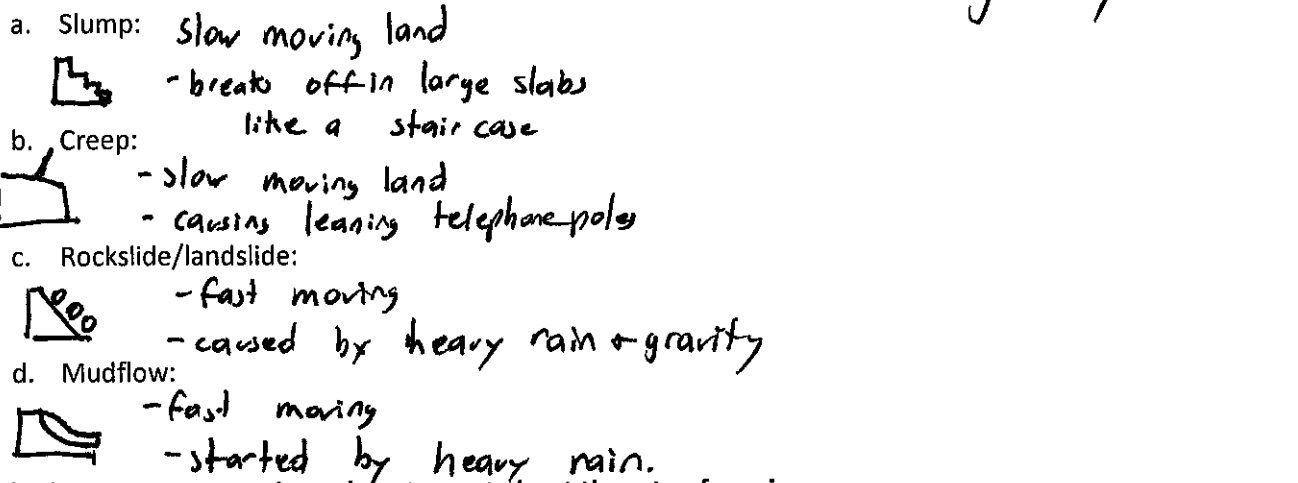 a. Slump: slow moving land
- breaks off in large slabs
like a stair case
b. Creep:
- slow moving land
- causing leaning telephone poles
c. Rockslide/landslide:
- fast moving
- caused by heavy rain + gravity
d. Mudflow:
- fast moving
- started by heavy rain.